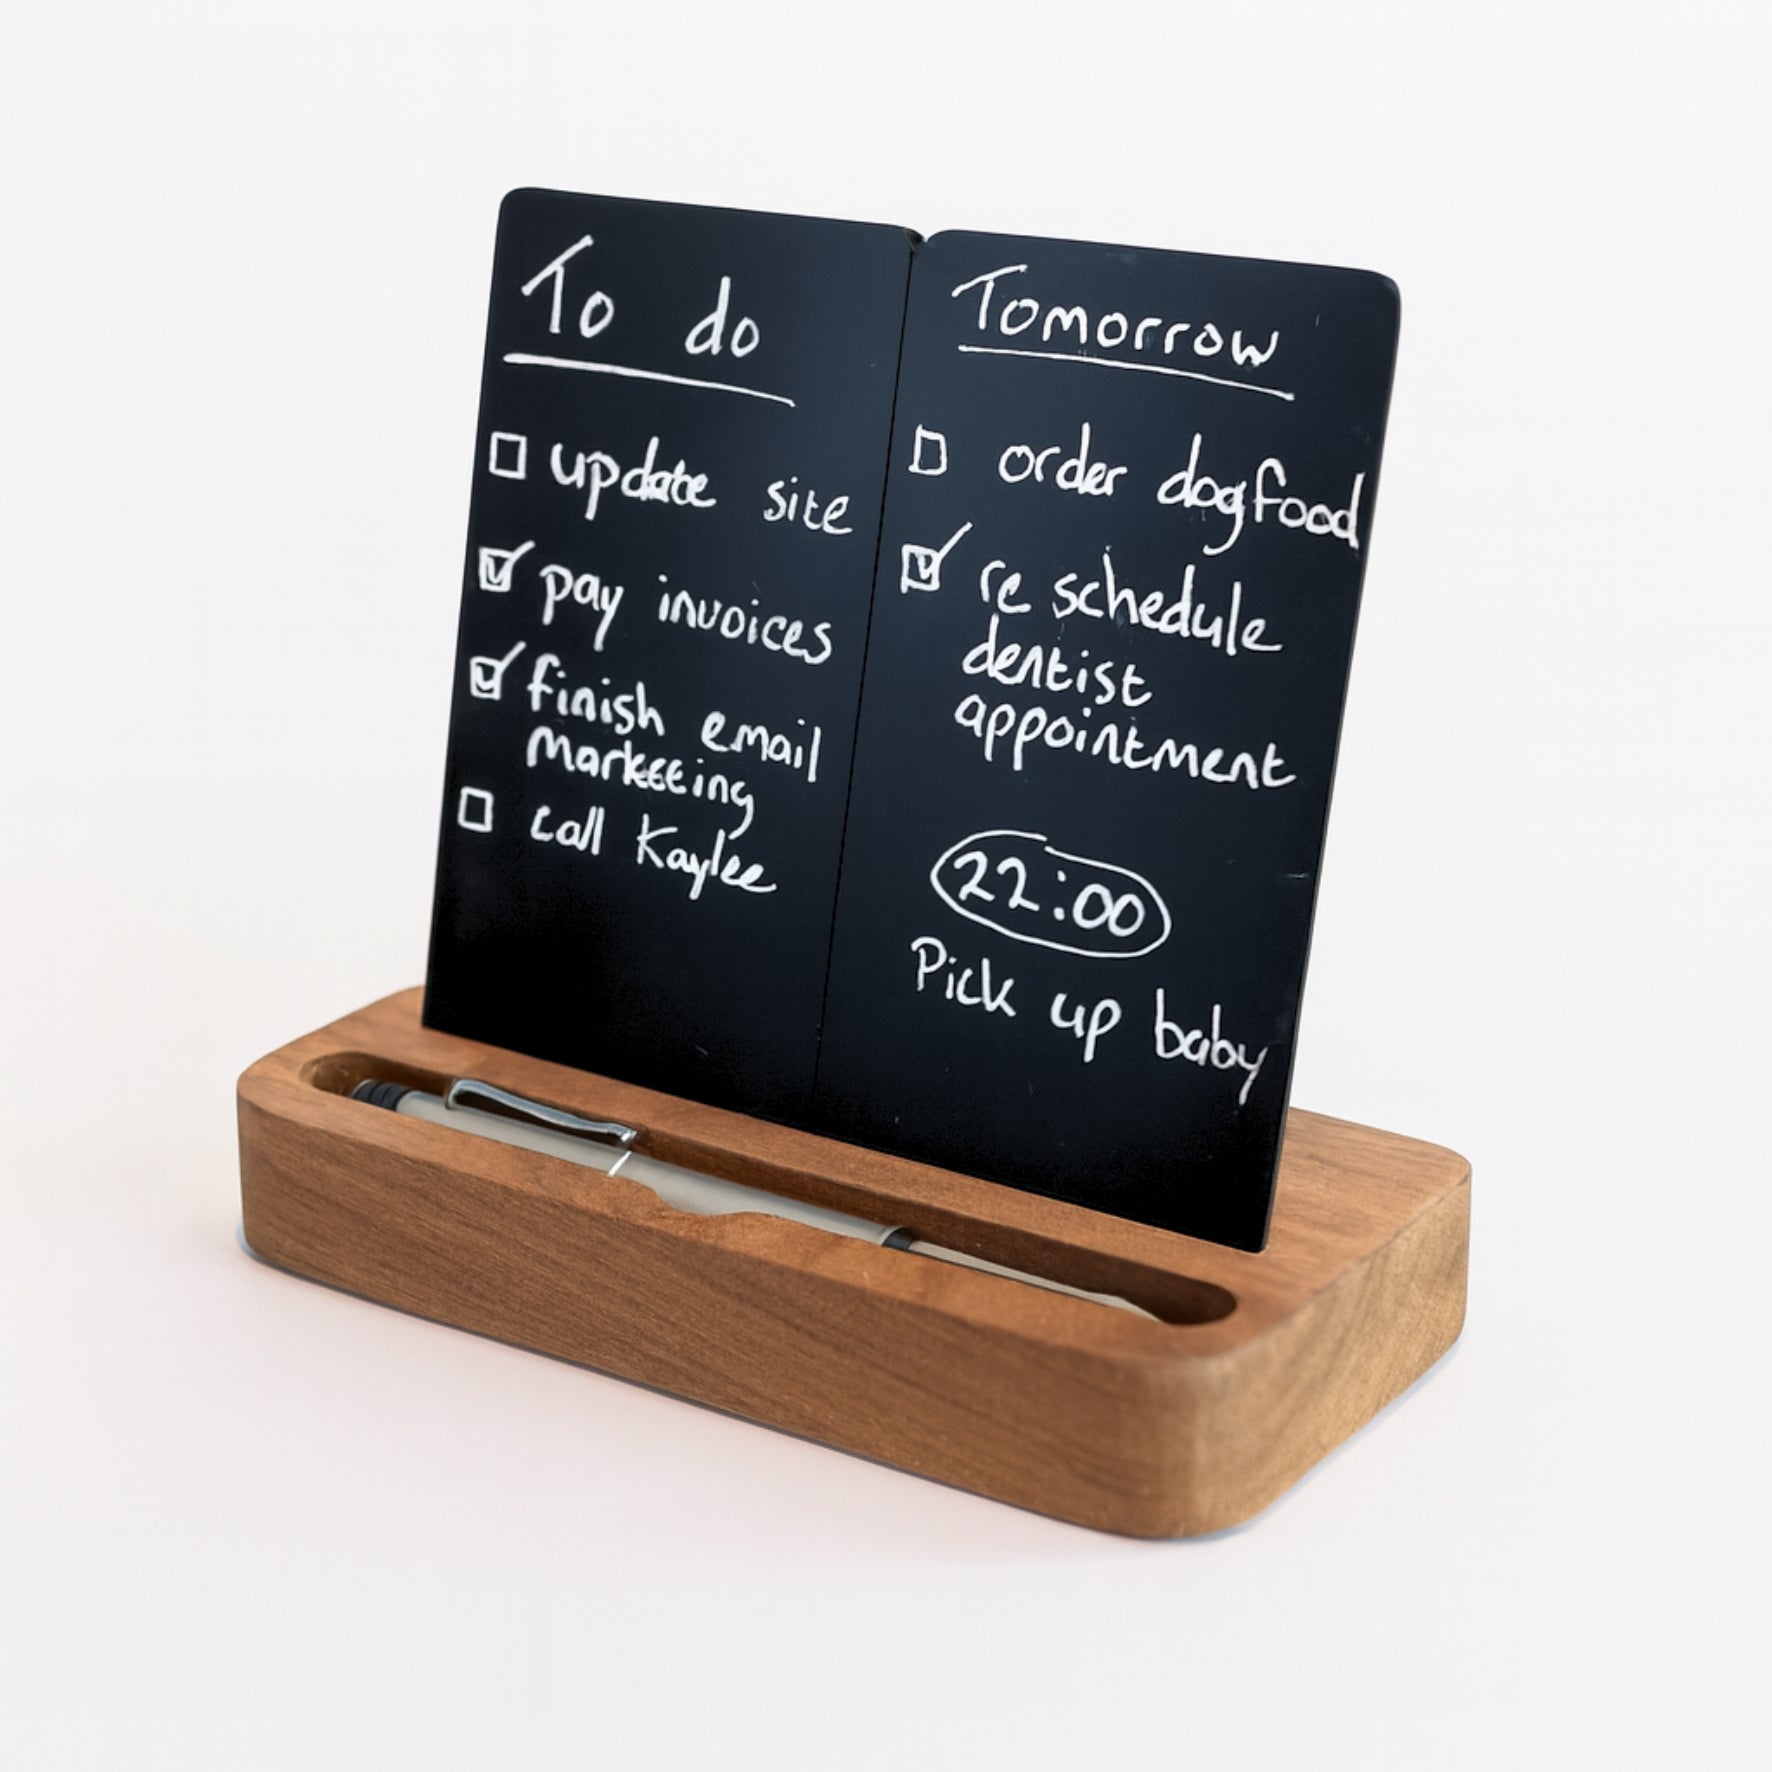 To do
☐ update site
☑ pay invoices
☑ finish email
marketing
☐ call Kaylee
Tomorrow
☐ order dogfood
☑ re schedule
dentist
appointment
22:00
Pick up baby